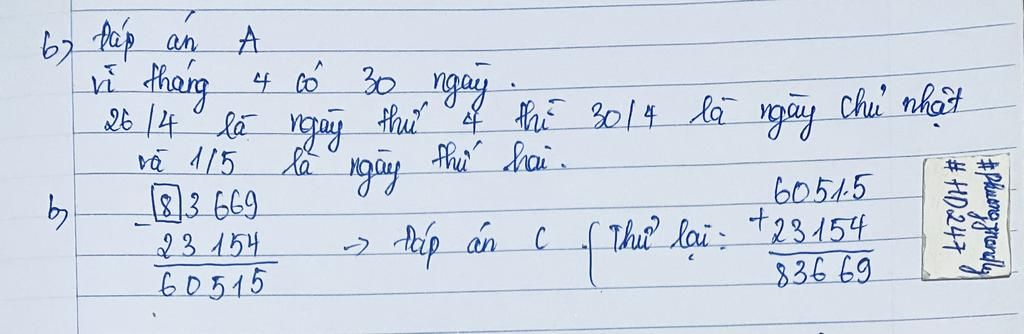 b) Đáp án A
vì tháng 4 có 30 ngày.
26/4 là ngày thứ 4 thì 30/4 là ngày chủ nhật
và 1/5 là ngày thứ hai.
b)
83 669
-
23 154
60515
-> Đáp án C. { Thử lại:
60515
+
23154
83669
#Phuongtrandy
#HD247